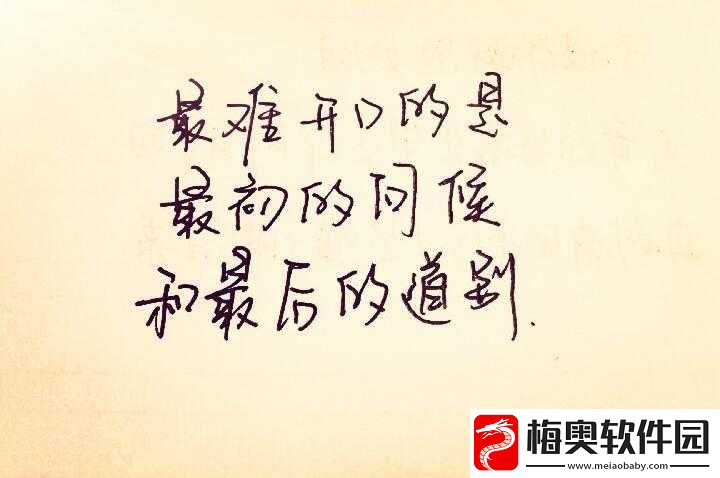 最难开口的是
最初的问候
和最后的道别.
梅奥软件园
www.meiaobaby.com